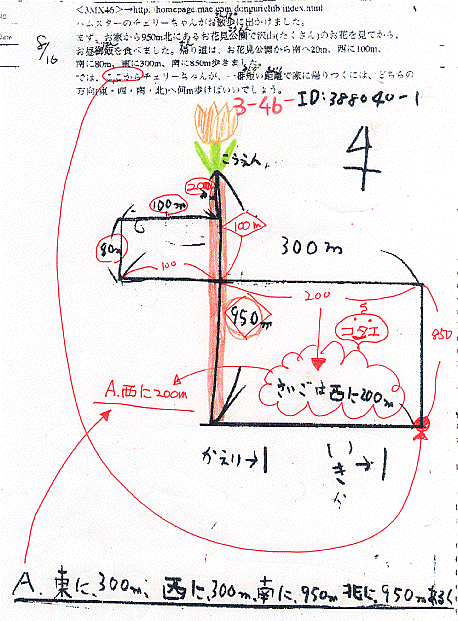 <3MX46>→http://homepage.mac.com/donguriclub/index.html
ハムスターのチェリーちゃんがお散歩に出かけました。
まず、お家から950m北にあるお花見公園で沢山(たくさん)のお花を見てから、
お昼御飯を食べました。帰り道は、お花見公園から南へ20m、西に100m、
南に80m、東に300m、南に850m歩きました。
では、ここからチェリーちゃんが、一番短い距離で家に帰りつくには、どちらの
方向(東・西・南・北)へ何m歩けばいいでしょう。
8/16
3-46-ID:388040-1
4
こうえん
20m
100m
100m
80m
300m
100
200
950m
850
コタエ
さいごは西に200m
A.西に200m
かえり→
いき
A. 東に、300m、西に、300m、南に、950m北に、950mあるく